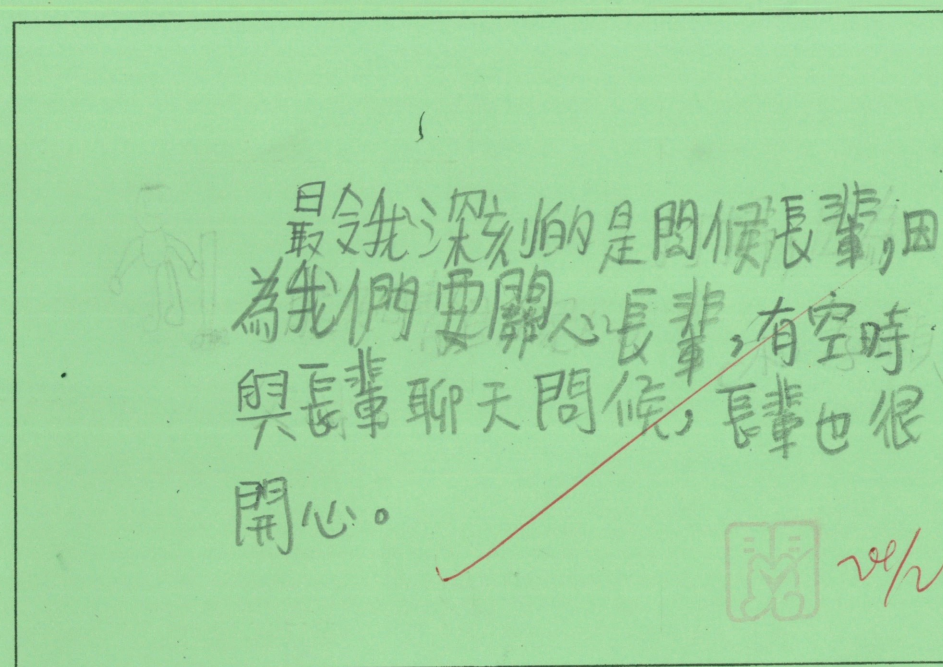 最令我深刻的是問候長輩,因
為我們要關心長輩,有空時
與長輩聊天問候,長輩也很
開心。
閱